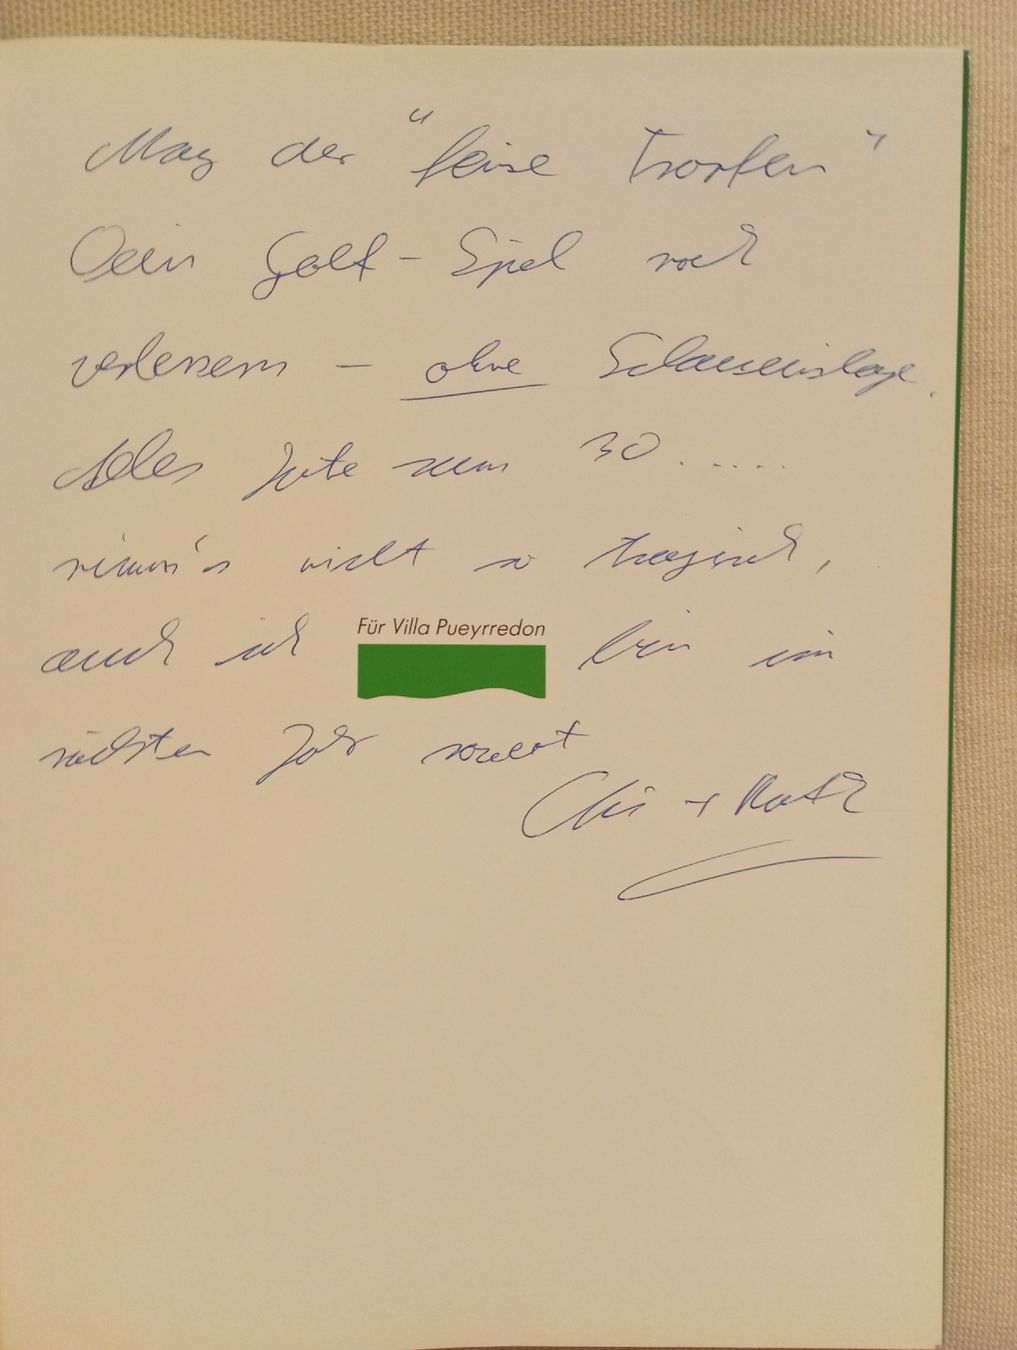 Mag der "feine Tropfen"
Dein Golf-Spiel noch
verbessern - ohne
Alles Gute zum 30.....
nimm's nicht so tragisch,
Für Villa Pueyrredon
auch ich bin im
nächsten Jahr soweit
Chris + Ruth